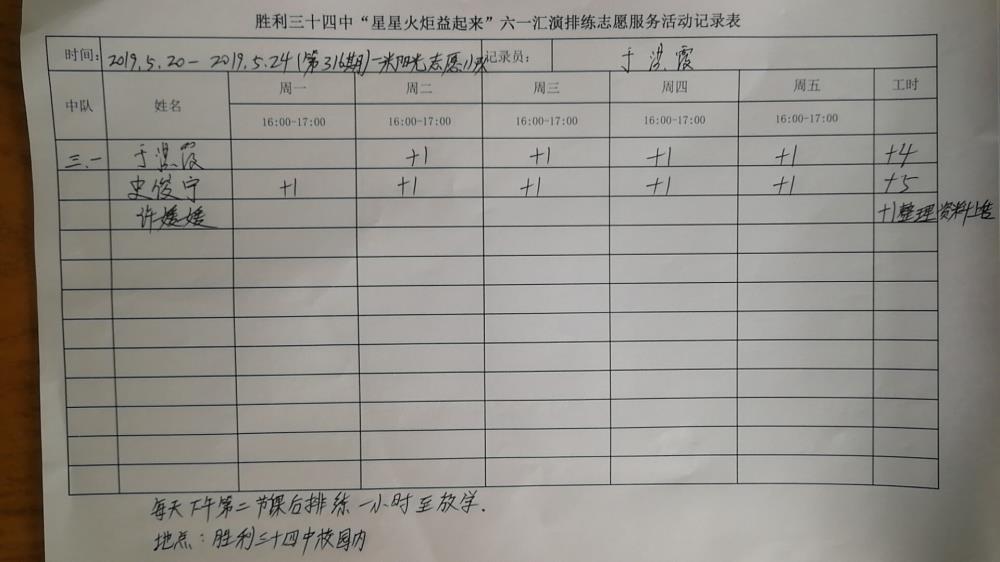 胜利三十四中“星星火炬益起来”六一汇演排练志愿服务活动记录表
时间: 2019.5.20-2019.5.24(第316期)一米阳光志愿小队 记录员: 于洪霞
中队 姓名 周一 周二 周三 周四 周五 工时
16:00-17:00 16:00-17:00 16:00-17:00 16:00-17:00 16:00-17:00
三.一 于洪霞 +1 +1 +1 +1 +4
史俊宁 +1 +1 +1 +1 +1 +5
许媛媛 +1整理资料上传
每天下午第二节课后排练一小时至放学.
地点:胜利三十四中校园内